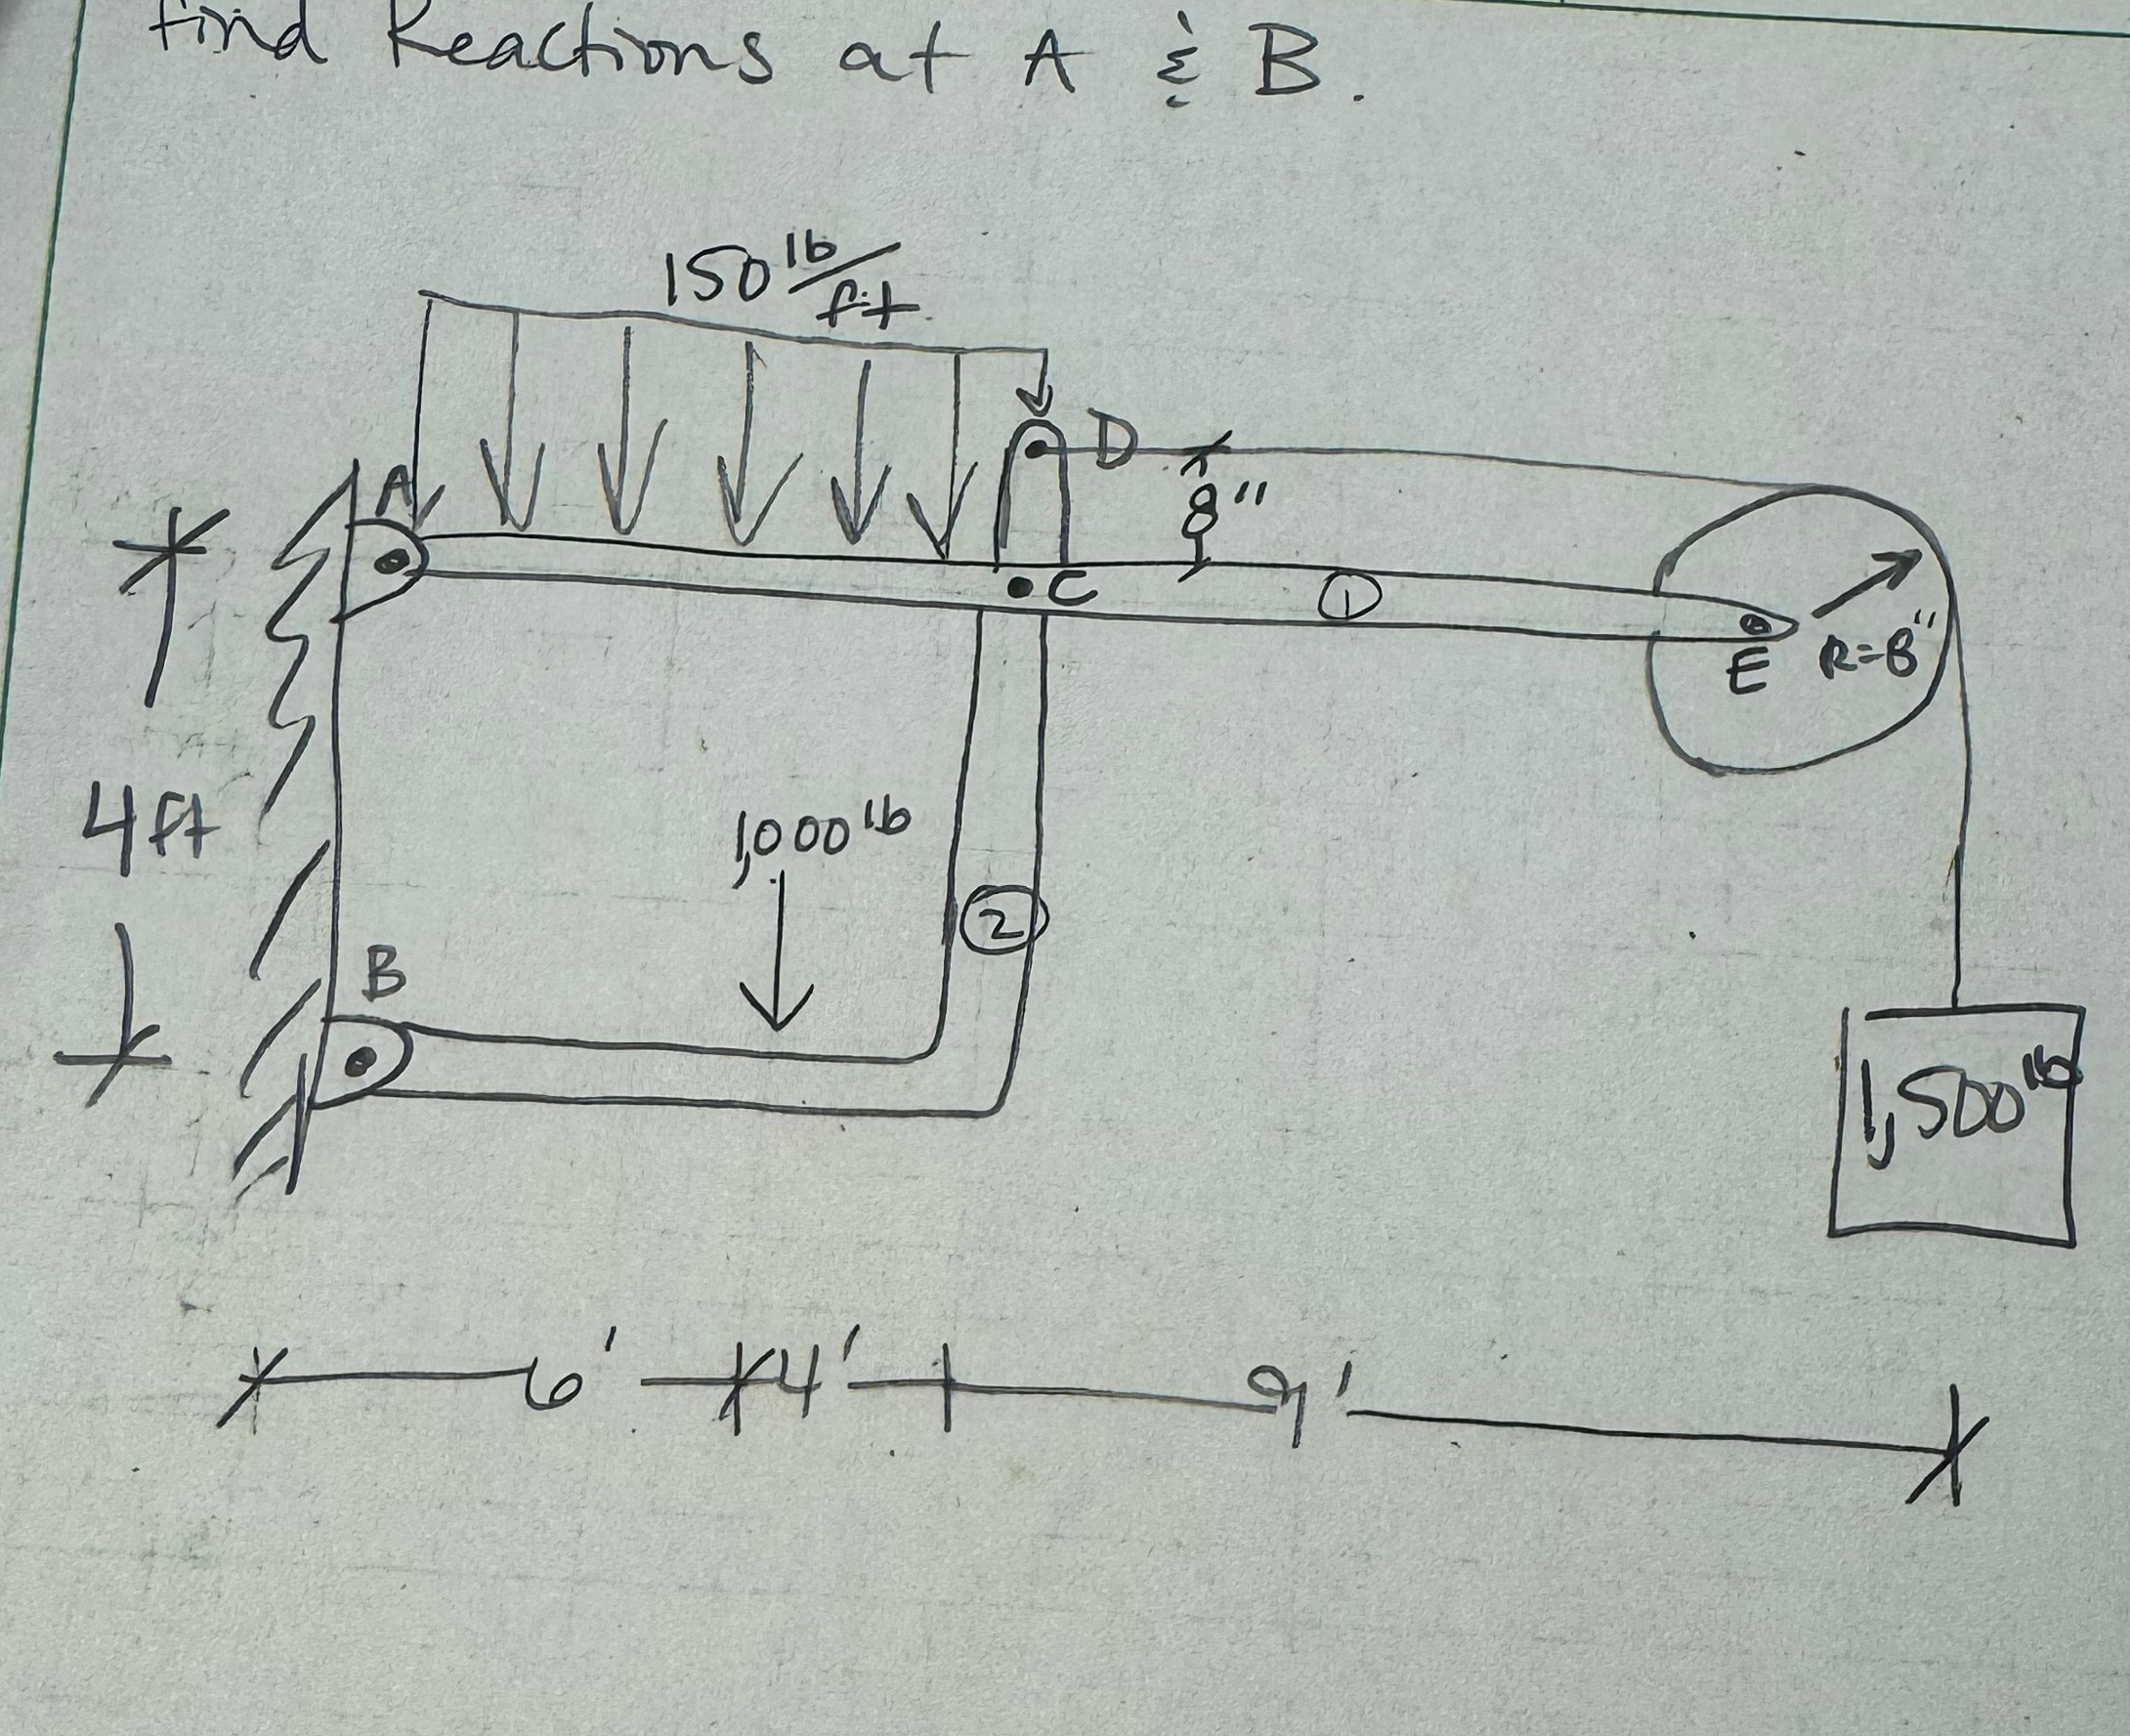 find Reactions at A & B.
150 lb/ft
A
D
8"
C
1
E
R=8"
4ft
1,000 lb
2
B
1,500 lb
6' 4' 9'